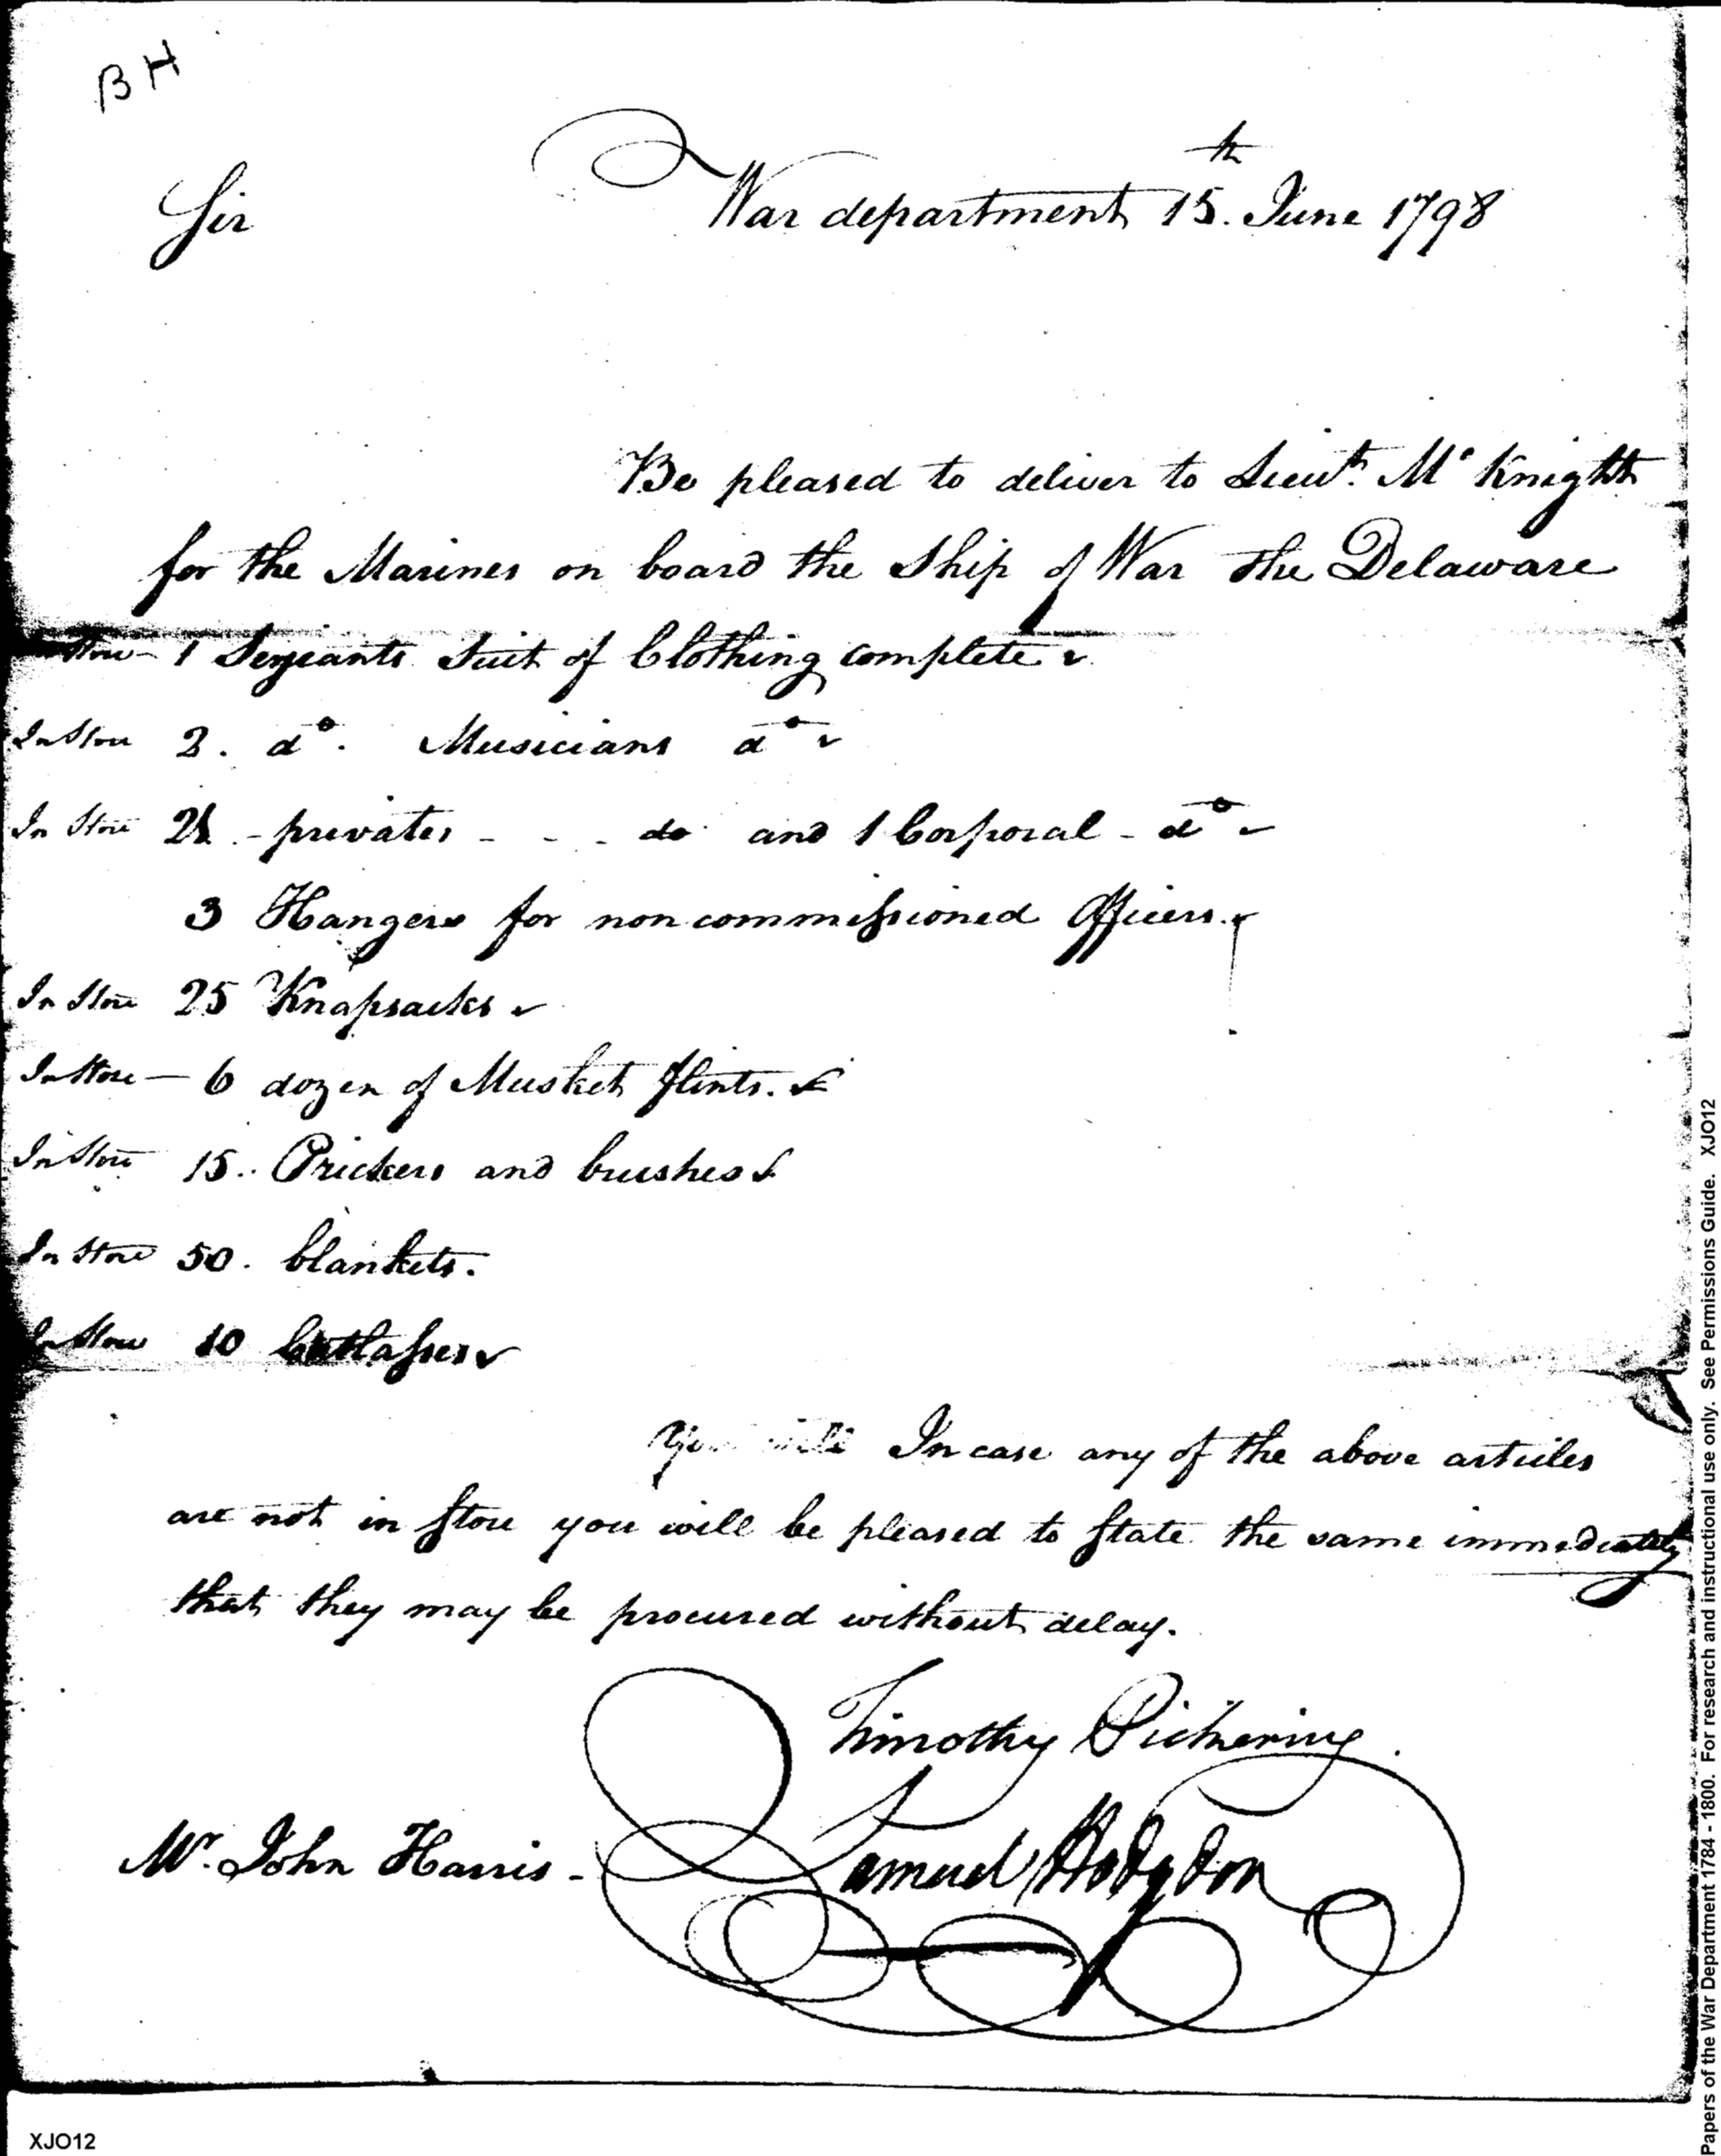 BH
Sir War department 15th. June 1798
Be pleased to deliver to Lieut. Mc Knight
for the Marines on board the Ship of War the Delaware
Store - 1 Serjeants Suit of Clothing complete
In Store 2. do. Musicians do
In Store - privates - - - do and 1 Corporal - do
3 Hangers for non commissioned Officers.
In Store 25 Knapsacks
In Store - 6 dozen of Musket flints.
In Store 15. Prickers and brushes
In Store 50. blankets.
In Store 10 Cutlasses
You will In case any of the above articles
are not in Store you will be pleased to State the same immediately
that they may be procured without delay.
Timothy Pickering.
Mr. John Harris - Samuel Hodgdon
XJO12
Papers of the War Department 1784 - 1800. For research and instructional use only. See Permissions Guide. XJO12